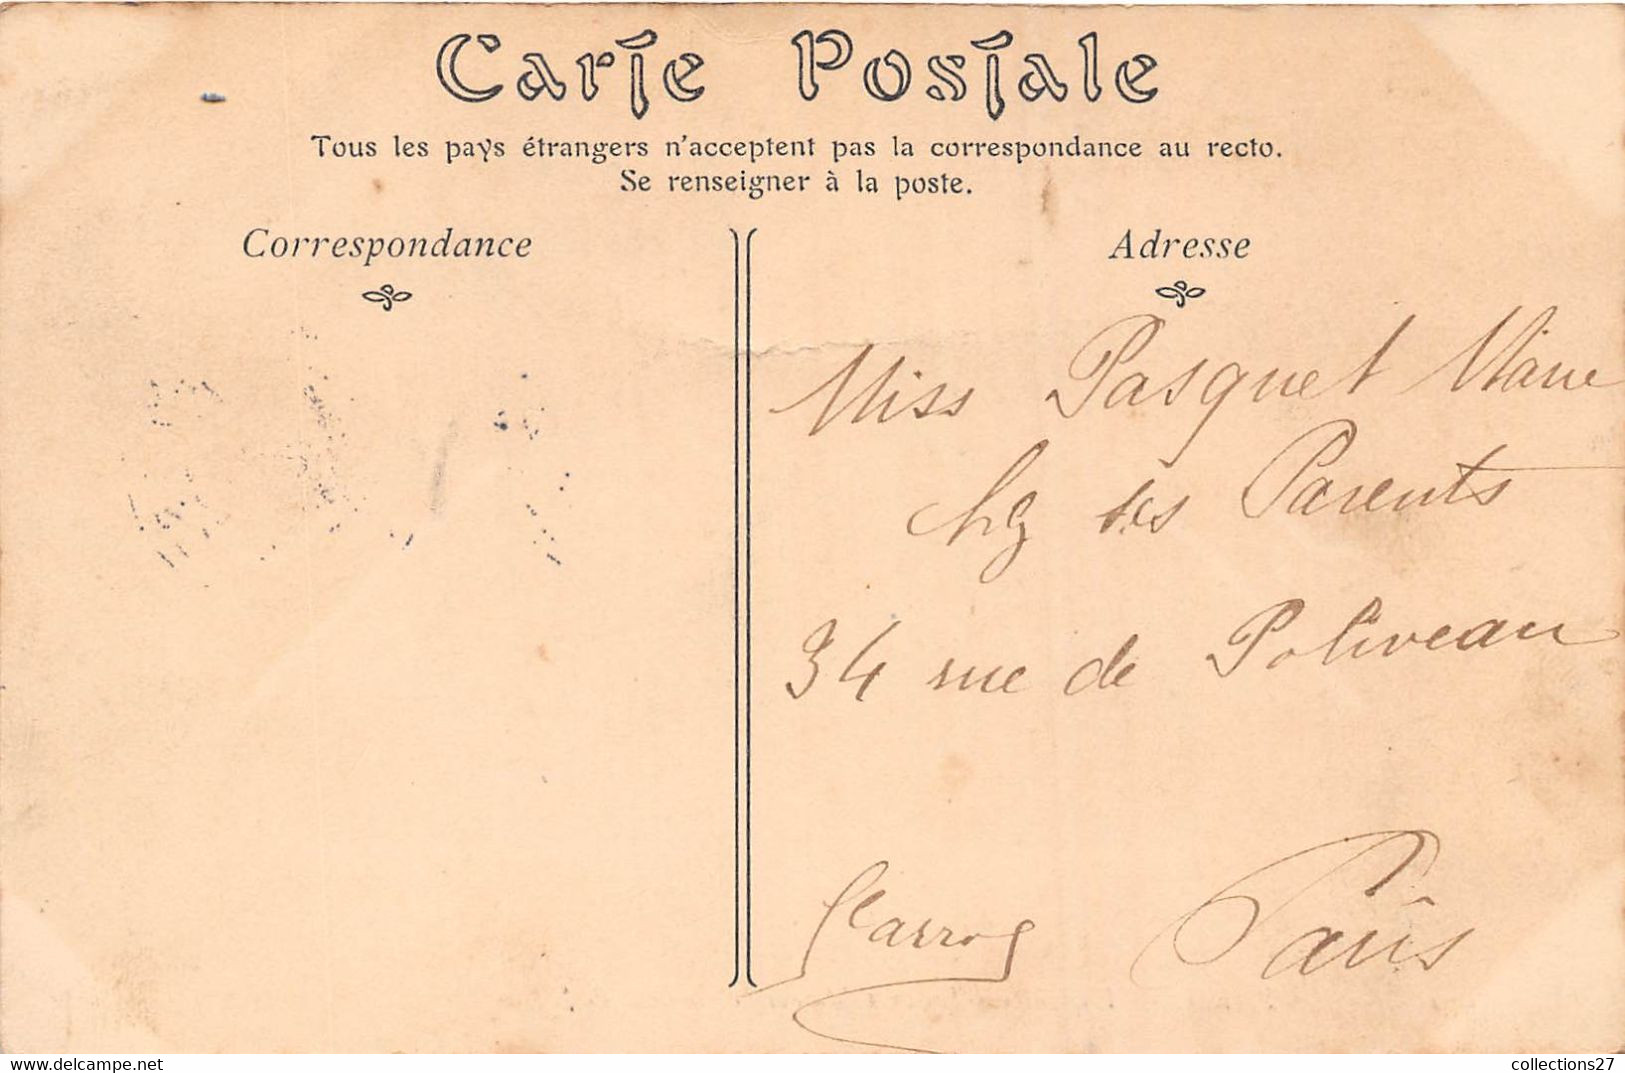 Carte Postale
Tous les pays étrangers n'acceptent pas la correspondance au recto.
Se renseigner à la poste.
Correspondance
Adresse
Miss Pasquet Marie
chez ses Parents
34 rue de Poliveau
Paris
www.delcampe.net
collections27